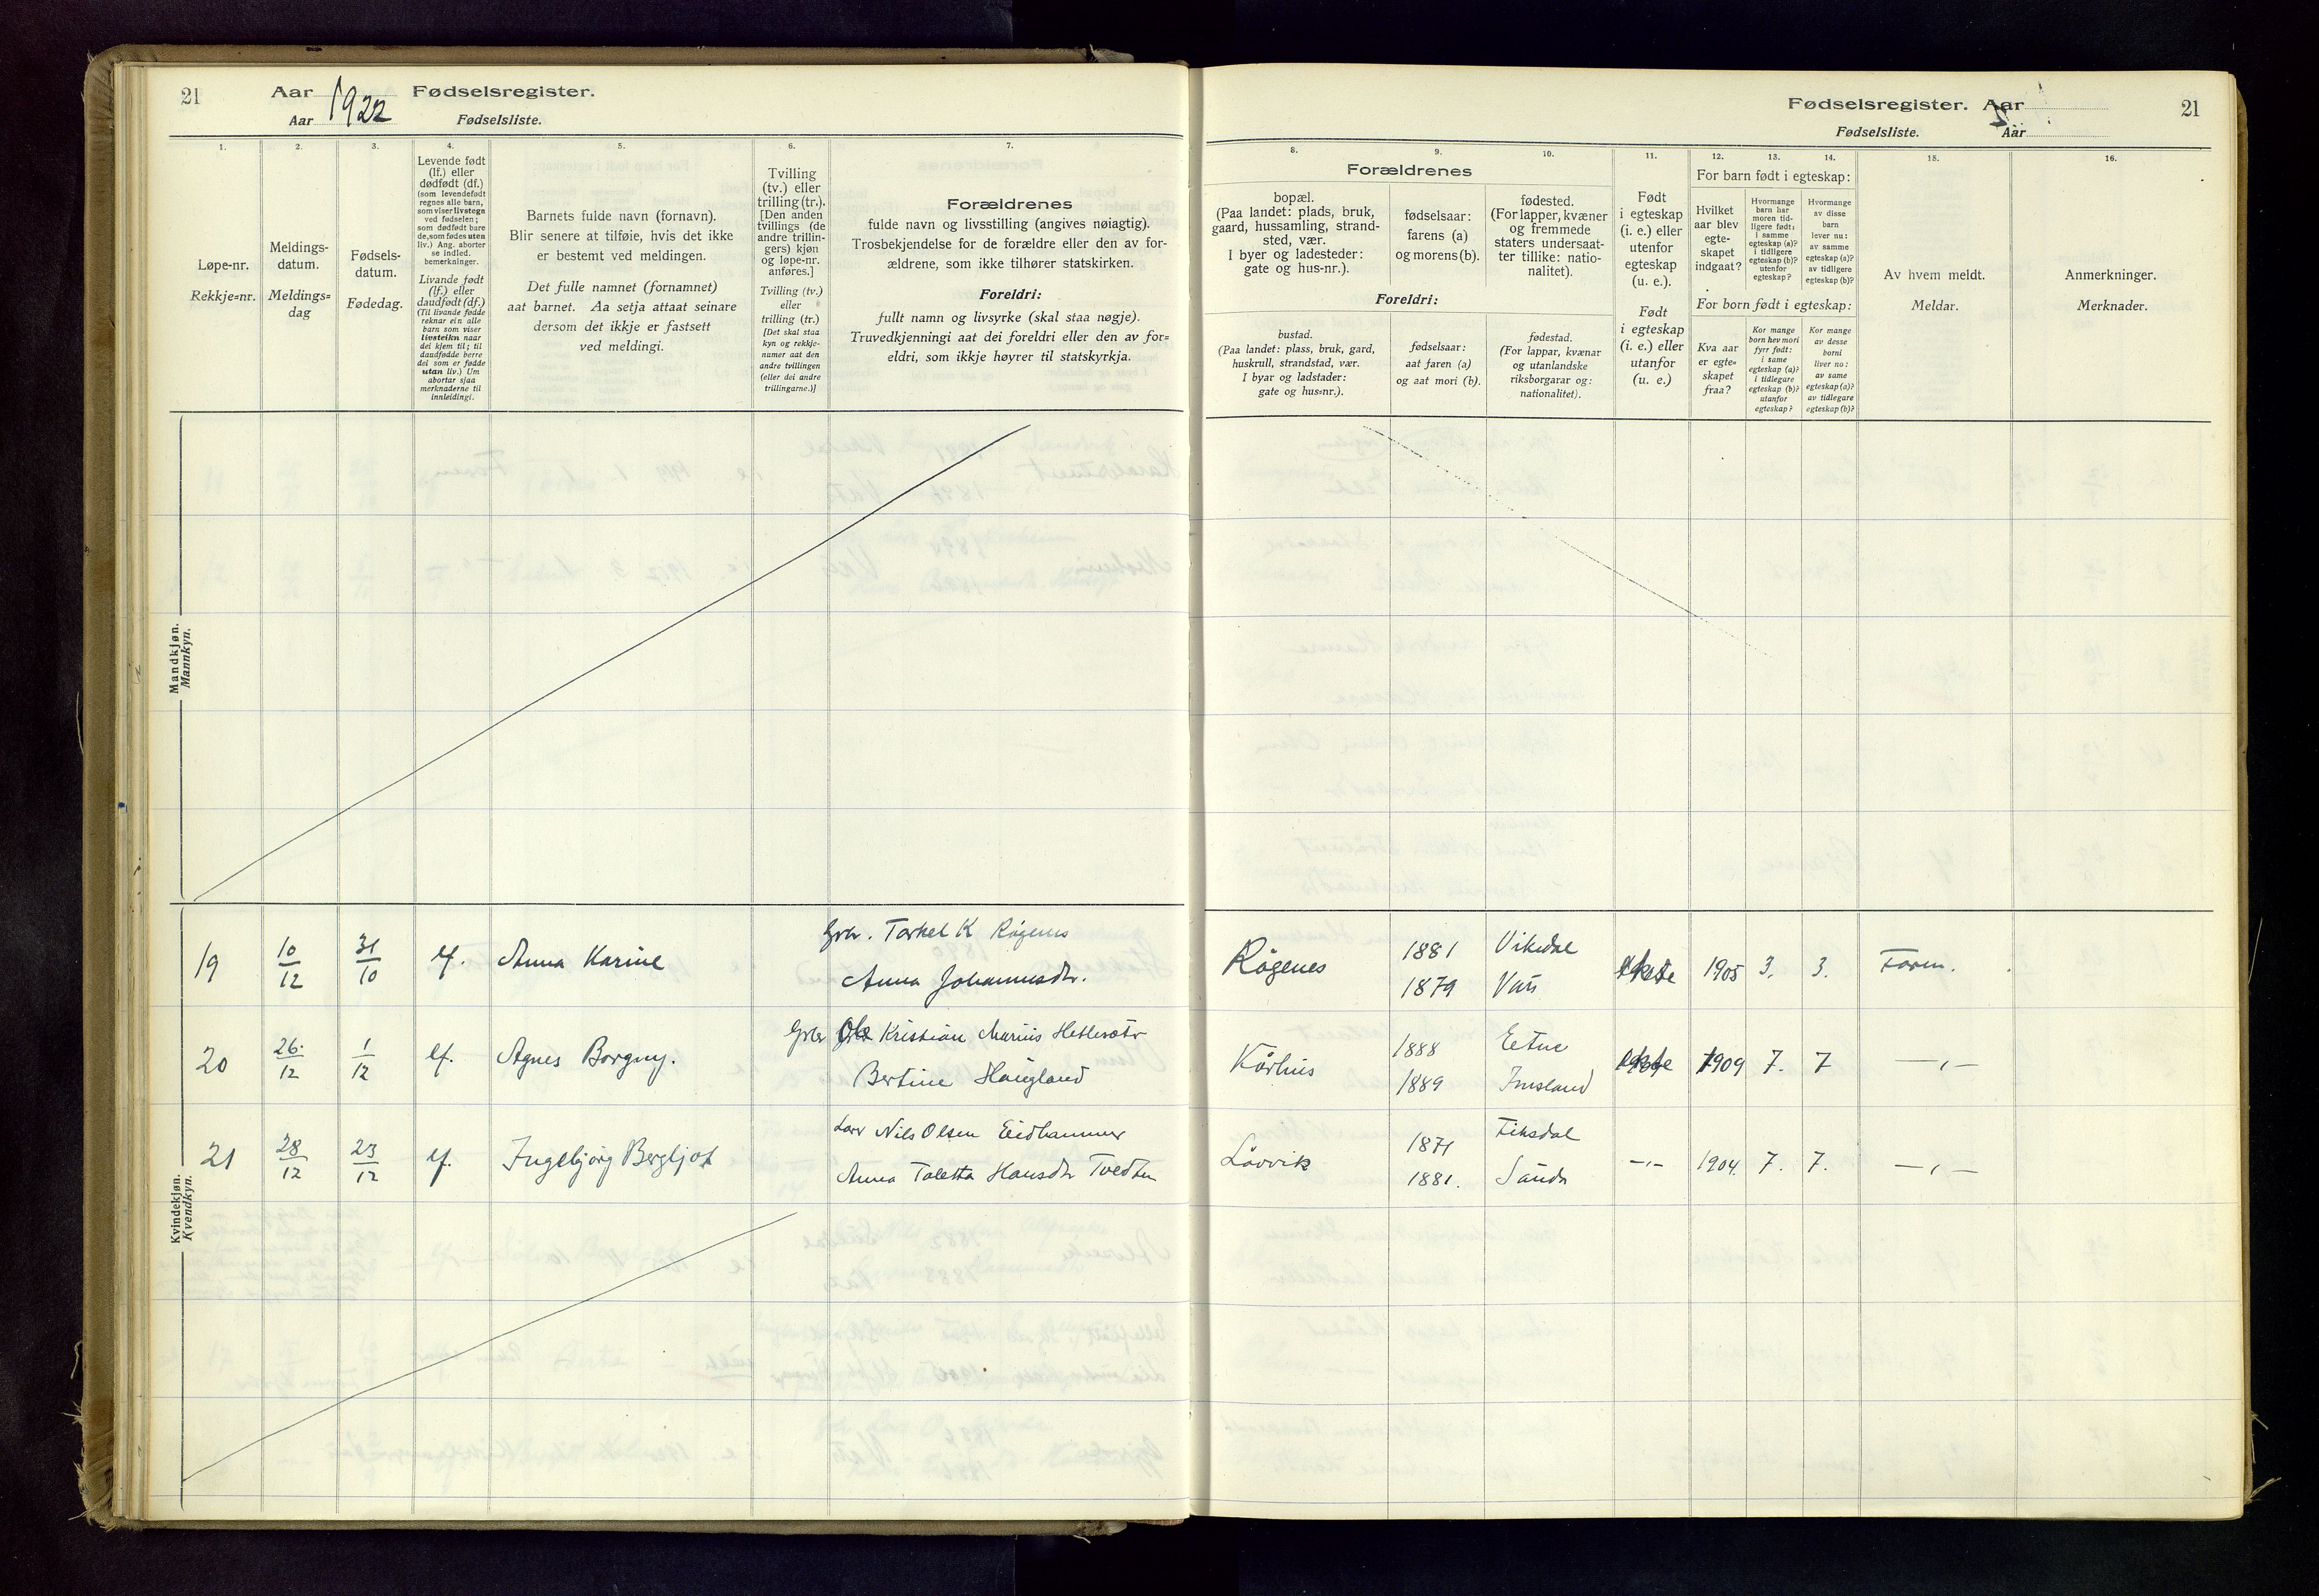 21
Aar 1922 Fødselsregister.
Aar Fødselsliste.
1.
2.
3.
4.
5.
6.
7.
Løpe-nr.
Rekkje=nr.
Meldings-
datum.
Meldings=
dag
Fødsels-
datum.
Fødedag.
Levende født
(lf.) eller
dødfødt (df.)
(som levendefødt
regnes alle barn,
som viser livstegn
ved fødselen;
som dødfødt bare
de, som fødes uten
liv.) Ang. aborter
se indled.
bemerkninger.
Livande født
(lf.) eller
daudfødt (df.)
(Til livande fødde
reknar ein alle
barn som viser
livsteikn naar
dei kjem til; til
daudfødde berre
dei som er fødde
utan liv.) Um
abortar sjaa
merknaderne til
innleidingi.
Barnets fulde navn (fornavn).
Blir senere at tilføie, hvis det ikke
er bestemt ved meldingen.
Det fulle namnet (fornamnet)
aat barnet. Aa setja attaat seinare
dersom det ikkje er fastsett
ved meldingi.
Tvilling
(tv.) eller
trilling (tr.).
[Den anden
tvillings (de
andre trillin-
gers) kjøn
og løpe-nr.
anføres.]
Tvilling (tv.)
eller
trilling (tr.)
[Det skal staa
kyn og rekkje-
numer aat den
andre tvillingen
(eller dei andre
trillingarne.)]
Forældrenes
fulde navn og livsstilling (angives nøiagtig).
Trosbekjendelse for de forældre eller den av for-
ældrene, som ikke tilhører statskirken.
Foreldri:
fullt namn og livsyrke (skal staa nøgje).
Truvedkjenningi aat dei foreldri eller den av for=
eldri, som ikkje høyrer til statskyrkja.
Mandkjøn.
Mannkyn.
19 10/12 31/10 lf. Anna Karine Gbr. Torkel K Rögenes
Anna Johannesdtr.
20 26/12 1/12 lf. Agnes Borgny. Gbr Ole Kristian Marius Hetlesæter
Bertine Haugland
21 28/12 23/12 lf. Ingebjörg Bergljot Nils Olsen Eidhammer
Anna Taletta Hansdtr Tvedten
Kvindekjøn.
Kvendkyn.
Fødselsregister. Aar
Fødselsliste. Aar
21
8.
9.
10.
11.
12.
13.
14.
15.
16.
Forældrenes
bopæl.
(Paa landet: plads, bruk,
gaard, hussamling, strand-
sted, vær.
I byer og ladesteder:
gate og hus-nr.).
fødselsaar:
farens (a)
og morens (b).
fødested.
(For lapper, kvæner
og fremmede
staters undersaat-
ter tillike: natio-
nalitet).
Foreldri:
bustad.
(Paa landet: plass, bruk, gard,
huskrull, strandstad, vær.
I byar og ladstader:
gate og hus=nr.).
fødselsaar:
aat faren (a)
og aat mori (b).
fødestad.
(For lappar, kvænar
og utanlandske
riksborgarar og:
nationalitet).
Født
i egteskap
(i. e.) eller
utenfor
egteskap
(u. e.).
Født
i egteskap
(i. e.) eller
utanfor
(u. e.)
For barn født i egteskap:
Hvilket
aar blev
egte-
skapet
indgaat?
Hvormange
barn har
moren tid-
ligere født:
i samme
egteskap (a)?
i tidligere
egteskap (b)?
utenfor
egteskap?
Hvormange
av disse
barn
lever nu:
av samme
egteskap (a)?
av tidligere
egteskap (b)?
For born født i egteskap:
Kva aar
er egte-
skapet
fraa?
Kor mange
born hev mori
fyrr født:
i same
egteskap (a)?
i tidlegare
egteskap (b)?
utanfor
egteskap?
Kor mange
av desse
borni
liver no:
av same
egteskap (a)?
av tidlegare
egteskap (b)?
Av hvem meldt.
Meldar.
Anmerkninger.
Merknader.
Rögenes 1881 Vikedal ekte 1905 3. 3. Faren.
1879 Vats
Kårhus 1888 Etne ekte 1909 7. 7 —〃—
1889 Imsland
Lövvik 1871 Fiksdal —〃— 1904. 7. 7. —〃—
1881. Saude